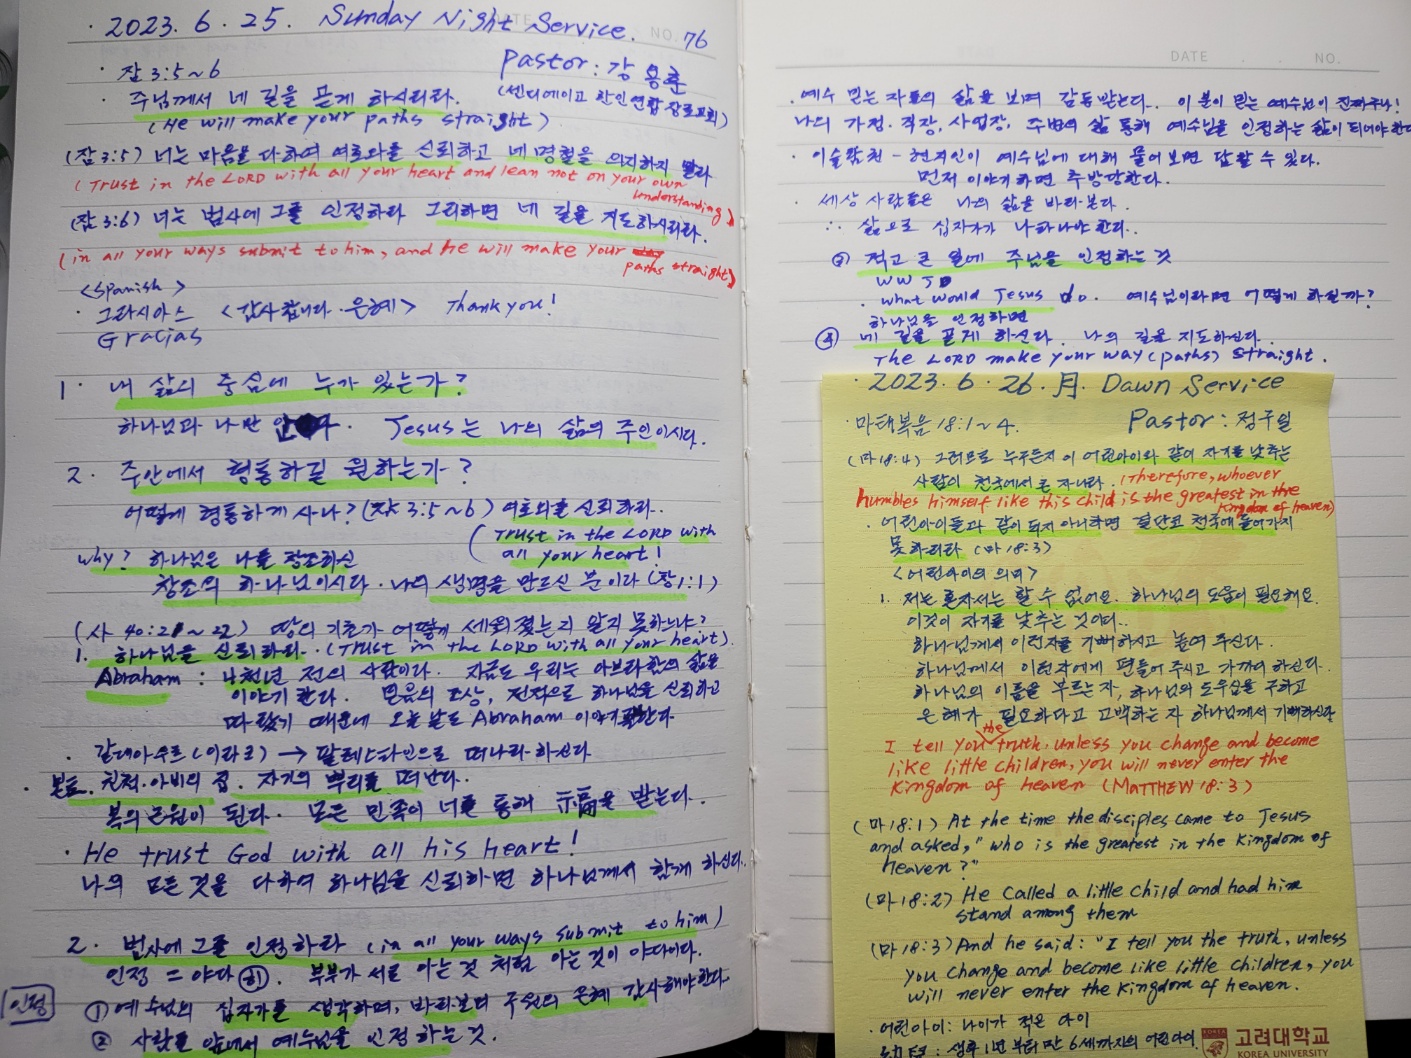 · 2023. 6. 25. Sunday Night Service.
DATE
NO. 76
· 잠 3:5~6
Pastor: 강용훈
(샌디에이고 한인연합 장로교회)
· 주님께서 네 길을 곧게 하시리라.
(He will make your paths straight)
(잠 3:5) 너는 마음을 다하여 여호와를 신뢰하고 네 명철을 의지하지 말라
(Trust in the LORD with all your heart and lean not on your own
understanding)
(잠 3:6) 너는 범사에 그를 인정하라 그리하면 네 길을 지도하시리라.
(in all your ways submit to him, and he will make your
paths straight)
<Spanish>
· 그라시아스 <감사합니다. 은혜> Thank you!
Gracias
1. 내 삶의 중심에 누가 있는가?
하나님과 나만 안다. Jesus는 나의 삶의 주인이시다.
2. 주안에서 형통하길 원하는가?
어떻게 형통하게 사나? (잠 3:5~6) 여호와를 신뢰하라..
(Trust in the LORD with
all your heart!
why? 하나님은 나를 창조하신
창조의 하나님이시다. 나의 생명을 만드신 분이다 (창 1:1)
(사 40:21~22) 땅의 기초가 어떻게 세워졌는지 알지 못하느냐?
1. 하나님을 신뢰하라.. (Trust in the LORD with all your heart).
Abraham : 4천년 전의 사람이다. 지금도 우리는 아브라함의 삶을
이야기 한다. 믿음의 조상, 전적으로 하나님을 신뢰하고
따랐기 때문에 오늘날도 Abraham 이야기한다
· 갈대아우르 (이라크) → 팔레스타인으로 떠나라 하신다
· 본토. 친척. 아비의 집. 자기의 뿌리를 떠난다.
복의 근원이 된다. 모든 민족이 너를 통해 福을 받는다.
· He trust God with all his heart!
나의 모든 것을 다하여 하나님을 신뢰하면 하나님께서 함께 하신다.
2. 범사에 그를 인정하라 (in all your ways submit to him)
인정 = 야다 (히). 부부가 서로 아는 것 처럼 아는 것이 야다이다.
인정
① 예수님의 십자가를 생각하며, 바라보며 구원의 은혜 감사해야 한다.
② 사람들 앞에서 예수님을 인정하는 것.
DATE . . NO.
· 예수 믿는 자들의 삶을 보며 감동받는다.. 이 분이 믿는 예수님이 진짜구나!
나의 가정. 직장, 사업장, 주변의 삶 통해 예수님을 인정하는 삶이 되어야 한다
· 이슬람권 - 현지인이 예수님에 대해 물어보면 답할 수 있다.
먼저 이야기 하면 추방당한다.
· 세상 사람들은 나의 삶을 바라본다.
∴ 삶으로 십자가가 나타나야 한다..
③ 적고 큰 일에 주님을 인정하는 것
WWJD
· what would Jesus do. 예수님이라면 어떻게 하실까?
하나님을 인정하면
④ 네 길을 곧게 하신다. 나의 길을 지도하신다.
The LORD make your way (paths) straight.
· 2023. 6. 26. 月. Dawn Service
· 마태복음 18:1~4. Pastor: 정주일
(마 18:4) 그러므로 누구든지 이 어린아이와 같이 자기를 낮추는
사람이 천국에서 큰 자니라. (Therefore, whoever
humbles himself like this child is the greatest in the
kingdom of heaven)
· 어린아이들과 같이 되지 아니하면 결단코 천국에 들어가지
못하리라 (마 18:3)
<어린아이의 의미>
1. 저는 혼자서는 할 수 없어요. 하나님의 도움이 필요해요.
이것이 자기를 낮추는 것이다..
하나님께서 이런자를 기뻐하시고 높여 주신다.
하나님께서 이런자에게 편들어 주시고 가까이 하신다.
하나님의 이름을 부르는 자, 하나님의 도우심을 구하고
은혜가 필요하다고 고백하는 자 하나님께서 기뻐하신다
I tell you the truth, unless you change and become
like little children, you will never enter the
kingdom of heaven (MATTHEW 18:3)
(마 18:1) At the time the disciples came to Jesus
and asked, "who is the greatest in the kingdom of
heaven?"
(마 18:2) He called a little child and had him
stand among them
(마 18:3) And he said: "I tell you the truth, unless
you change and become like little children, you
will never enter the kingdom of heaven.
· 어린아이: 나이가 적은 아이
생후 1년 부터 만 6세까지의 어린아이.
고려대학교
KOREA UNIVERSITY